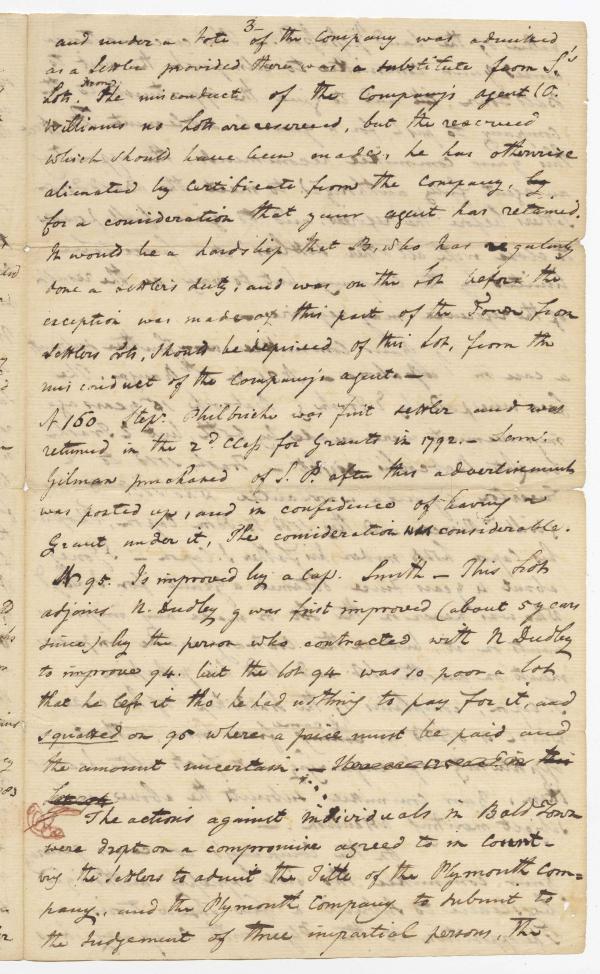 3
and under a Vote of the Company was admitted
as a Settler provided there was a substitute from S.'s
Lots. From The misconduct of the Company's agent (O.
Williams no Lots are reserved, but the reserved
which should have been made, he has otherwise
alienated by Certificate from the Company, by
for a consideration that your agent has retained.
It would be a hardship that B. who has regularly
done a Settlers duty, and was on the Lot before the
exception was made of this part of the Town from
Settlers Lots, should be deprived of this Lot, from the
misconduct of the Company's agent —
N 160 Step.n Philbrick was first settler and was
returned in the 2.d Class for Grants in 1792. — Sam.l
Gilman purchased of S. P. after this advertisement
was posted up, and in confidence of having a
Grant under it, The consideration was considerable.
N 95. Is improved by a Cap. Smith — This Lot
adjoins N. Dudley & was first improved (about 5 years
since) by the person who contracted with N Dudley
to improve 94. but the lot 94 was so poor a lot
that he left it tho' he had nothing to pay for it, and
squatted on 95 where a price must be paid and
the amount uncertain. —
The actions against individuals in Bald Town
were dropt on a compromise agreed to in Court —
viz the Settlers to admit the Title of the Plymouth Com=
pany, and the Plymouth Company to submit to
the Judgement of three impartial persons, The